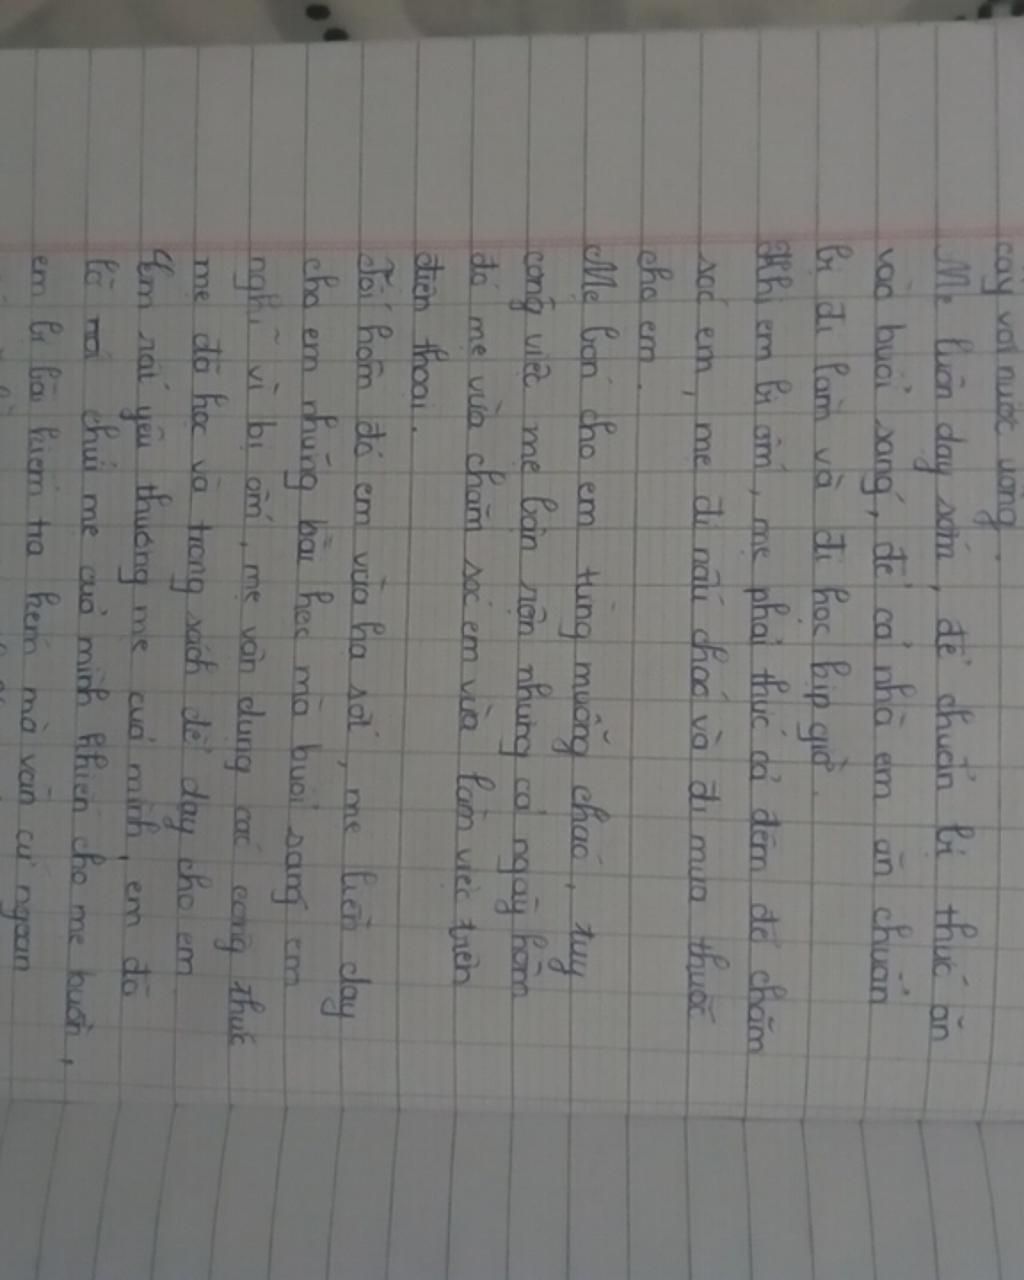 cây với nước uống.
Mẹ luôn dạy sớm, để chuẩn bị thức ăn
vào buổi sáng, để cả nhà em ăn chuẩn
bị đi làm và đi học kịp giờ.
Khi em bị ốm, mẹ phải thức cả đêm để chăm
sóc em, mẹ đi nấu cháo và đi mua thuốc
cho em.
Mẹ bón cho em từng muỗng cháo, tuy
công việc mẹ bận rộn nhưng cả ngày hôm
đó mẹ vừa chăm sóc em vừa làm việc trên
điện thoại.
Tối hôm đó em vừa hạ sốt, mẹ liền dạy
cho em những bài học mà buổi sáng em
nghỉ vì bị ốm, mẹ vận dụng các công thức
mẹ đã học và trong sách để dạy cho em
Em rất yêu thương mẹ của mình, em đã
lỡ chửi mẹ của mình khiến cho mẹ buồn,
em bị bài kiểm tra kém mà vẫn cứ ngoan